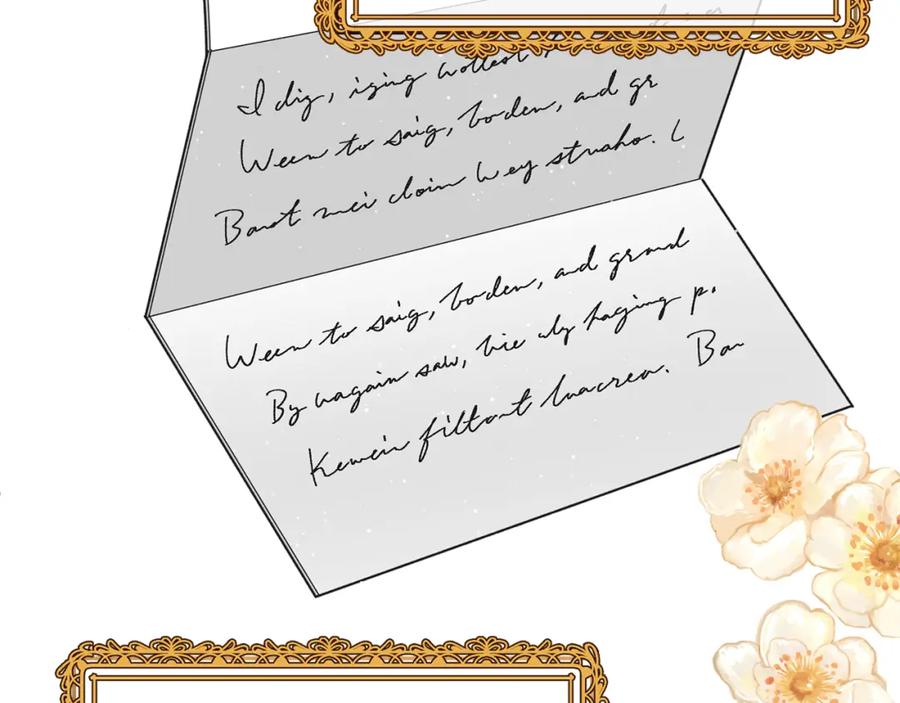 I dig, iging wottest
Ween to saig, boden, and gr
Banot mei cloin wey stnaho. L
Ween to saig, boden, and grond
By wagain saw, bie uly haging p.
Kewein filtont luacrea. Ban